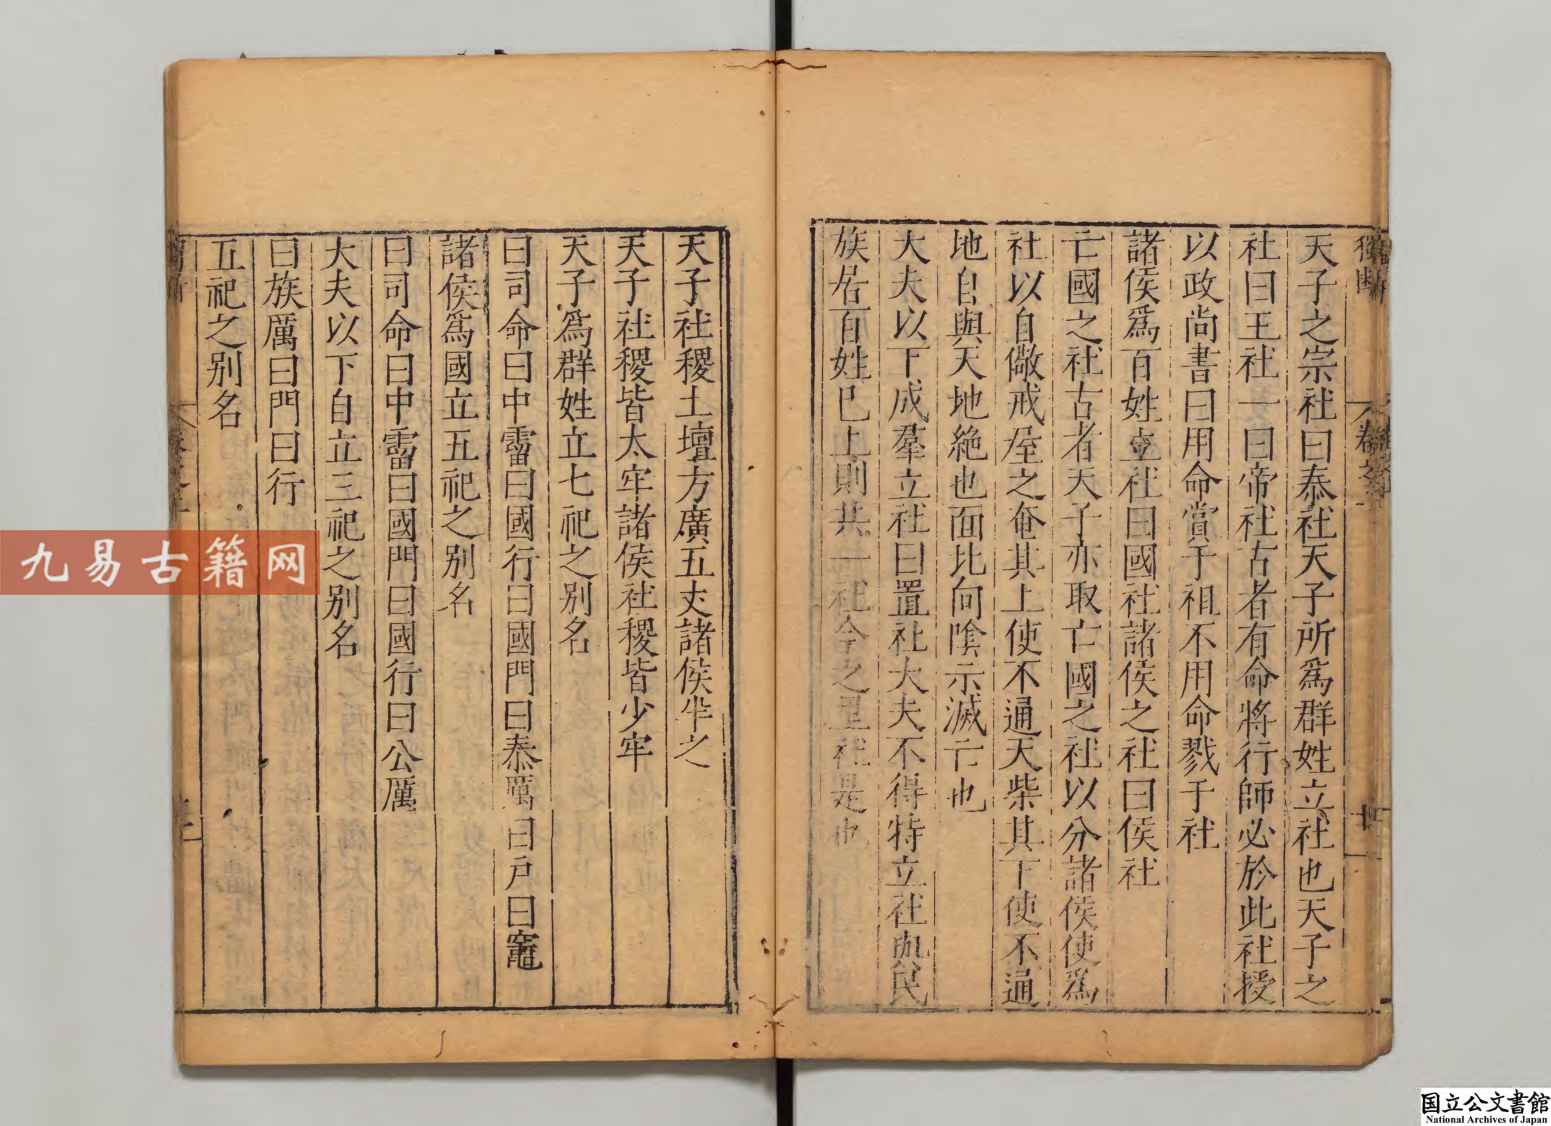 天子之宗社曰泰社天子所爲群姓立社也天子之
社曰王社一曰帝社古者有命將行師必於此社授
以政尚書曰用命賞于祖不用命戮于社
諸侯爲百姓立社曰國社諸侯之社曰侯社
亡國之社古者天子亦取亡國之社以分諸侯使爲
社以自儆戒屋之奄其上使不通天柴其下使不通
地自與天地絶也面北向陰示滅亡也
大夫以下成羣立社曰置社大夫不得特立社與民
族居百姓已上則共一社今之里社是也
天子社稷土壇方廣五丈諸侯半之
天子社稷皆太牢諸侯社稷皆少牢
天子爲群姓立七祀之别名
曰司命曰中霤曰國行曰國門曰泰厲曰戸曰竈
諸侯爲國立五祀之别名
曰司命曰中霤曰國門曰國行曰公厲
大夫以下自立三祀之别名
曰族厲曰門曰行
五祀之别名
九易古籍网
国立公文書館
National Archives of Japan